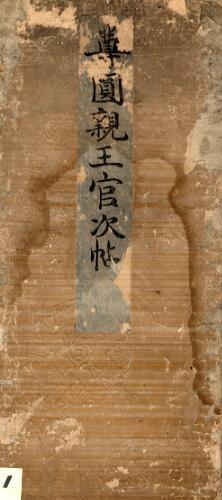 尊圓親王官次帖
1